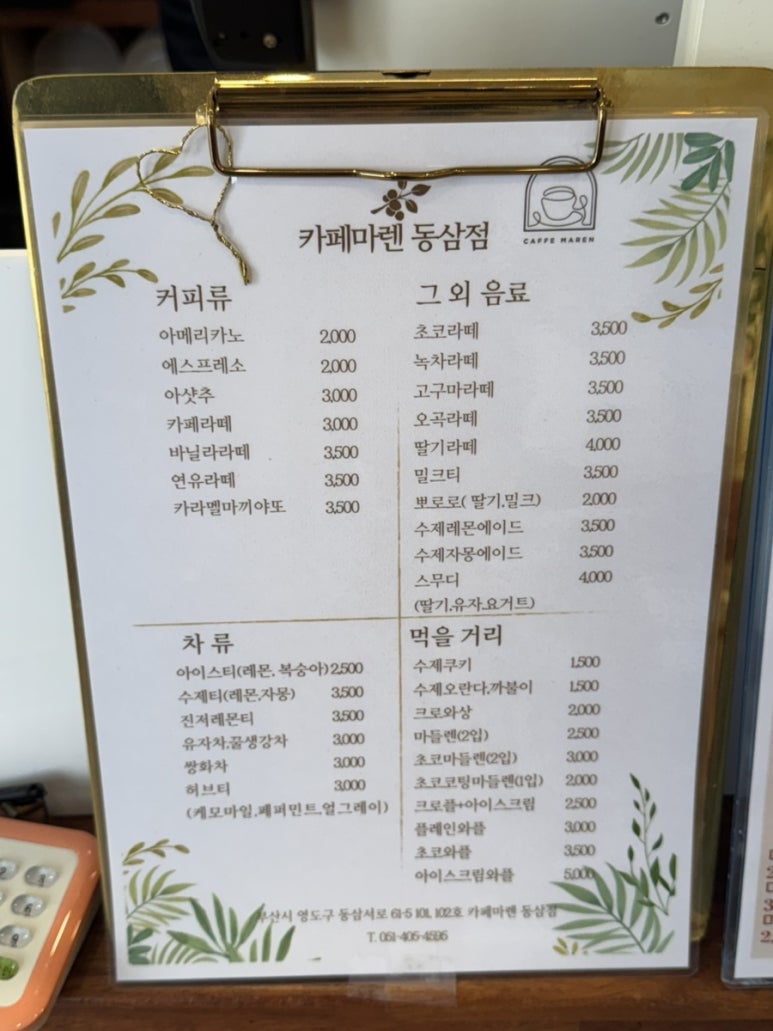 카페마렌 동삼점
CAFFE MAREN
커피류
아메리카노 2,000
에스프레소 2,000
아샷추 3,000
카페라떼 3,000
바닐라라떼 3,500
연유라떼 3,500
카라멜마끼야또 3,500
그 외 음료
초코라떼 3,500
녹차라떼 3,500
고구마라떼 3,500
오곡라떼 3,500
딸기라떼 4,000
밀크티 3,500
뽀로로( 딸기,밀크) 2,000
수제레몬에이드 3,500
수제자몽에이드 3,500
스무디 4,000
(딸기,유자,요거트)
차 류
아이스티(레몬, 복숭아) 2,500
수제티(레몬,자몽) 3,500
진저레몬티 3,500
유자차,꿀생강차 3,000
쌍화차 3,000
허브티 3,000
(케모마일,페퍼민트,얼그레이)
먹을 거리
수제쿠키 1,500
수제오란다,까불이 1,500
크로와상 2,000
마들렌(2입) 2,500
초코마들렌(2입) 3,000
초코코팅마들렌(1입) 2,000
크로플+아이스크림 2,500
플레인와플 3,000
초코와플 3,500
아이스크림와플 5,000
부산시 영도구 동삼서로 61-5 101, 102호 카페마렌 동삼점
T. 051-405-4595